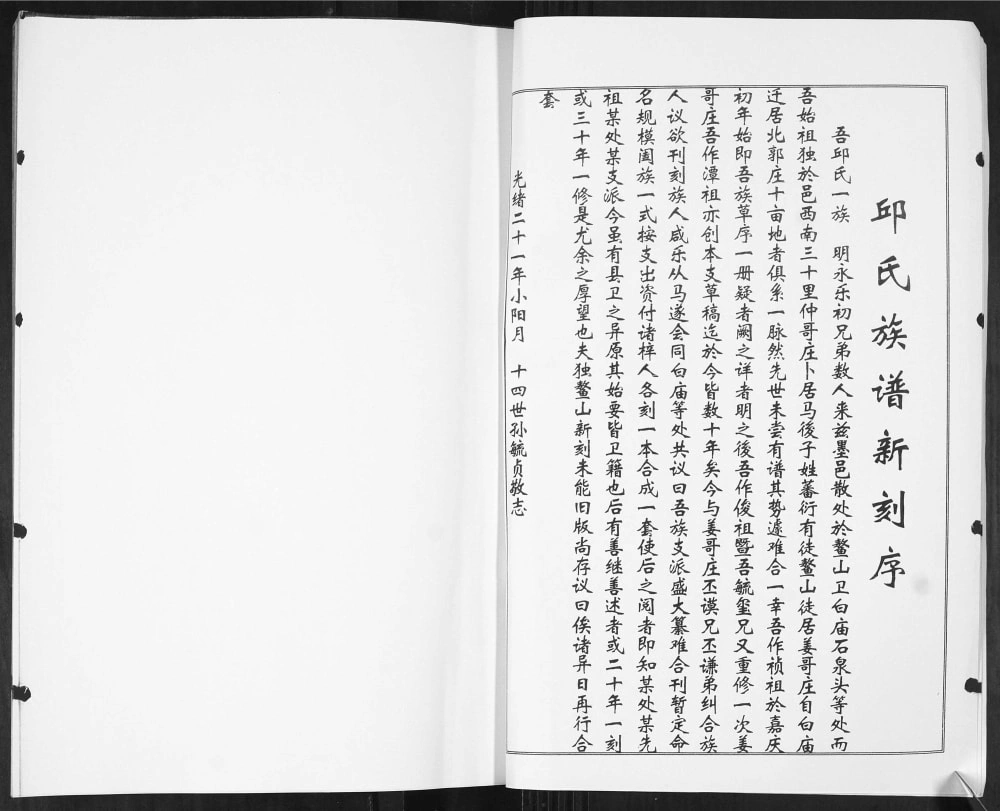 邱氏族谱新刻序
吾邱氏一族　明永乐初兄弟数人来兹墨邑散处於鳌山卫白庙石泉头等处而
吾始祖独於邑西南三十里仲哥庄卜居马後子姓蕃衍有徒鳌山徒居姜哥庄自白庙
迁居北郭庄十亩地者俱系一脉然先世未尝有谱其势遽难合一幸吾作祯祖於嘉庆
初年始即吾族草序一册疑者阙之详者明之後吾作俊祖暨吾毓玺兄又重修一次姜
哥庄吾作潭祖亦创本支草稿迄於今皆数十年矣今与姜哥庄丕谟兄丕谦弟纠合族
人议欲刊刻族人咸乐从马遂会同白庙等处共议曰吾族支派盛大纂难合刊暂定命
名规模阖族一式按支出资付诸梓人各刻一本合成一套使后之阅者即知某处某先
祖某处某支派今虽有县卫之异原其始要皆卫籍也后有善继善述者或二十年一刻
或三十年一修是尤余之厚望也夫独鳌山新刻未能旧版尚存议曰俟诸异日再行合
套
光绪二十一年小阳月　十四世孙毓贞敬志